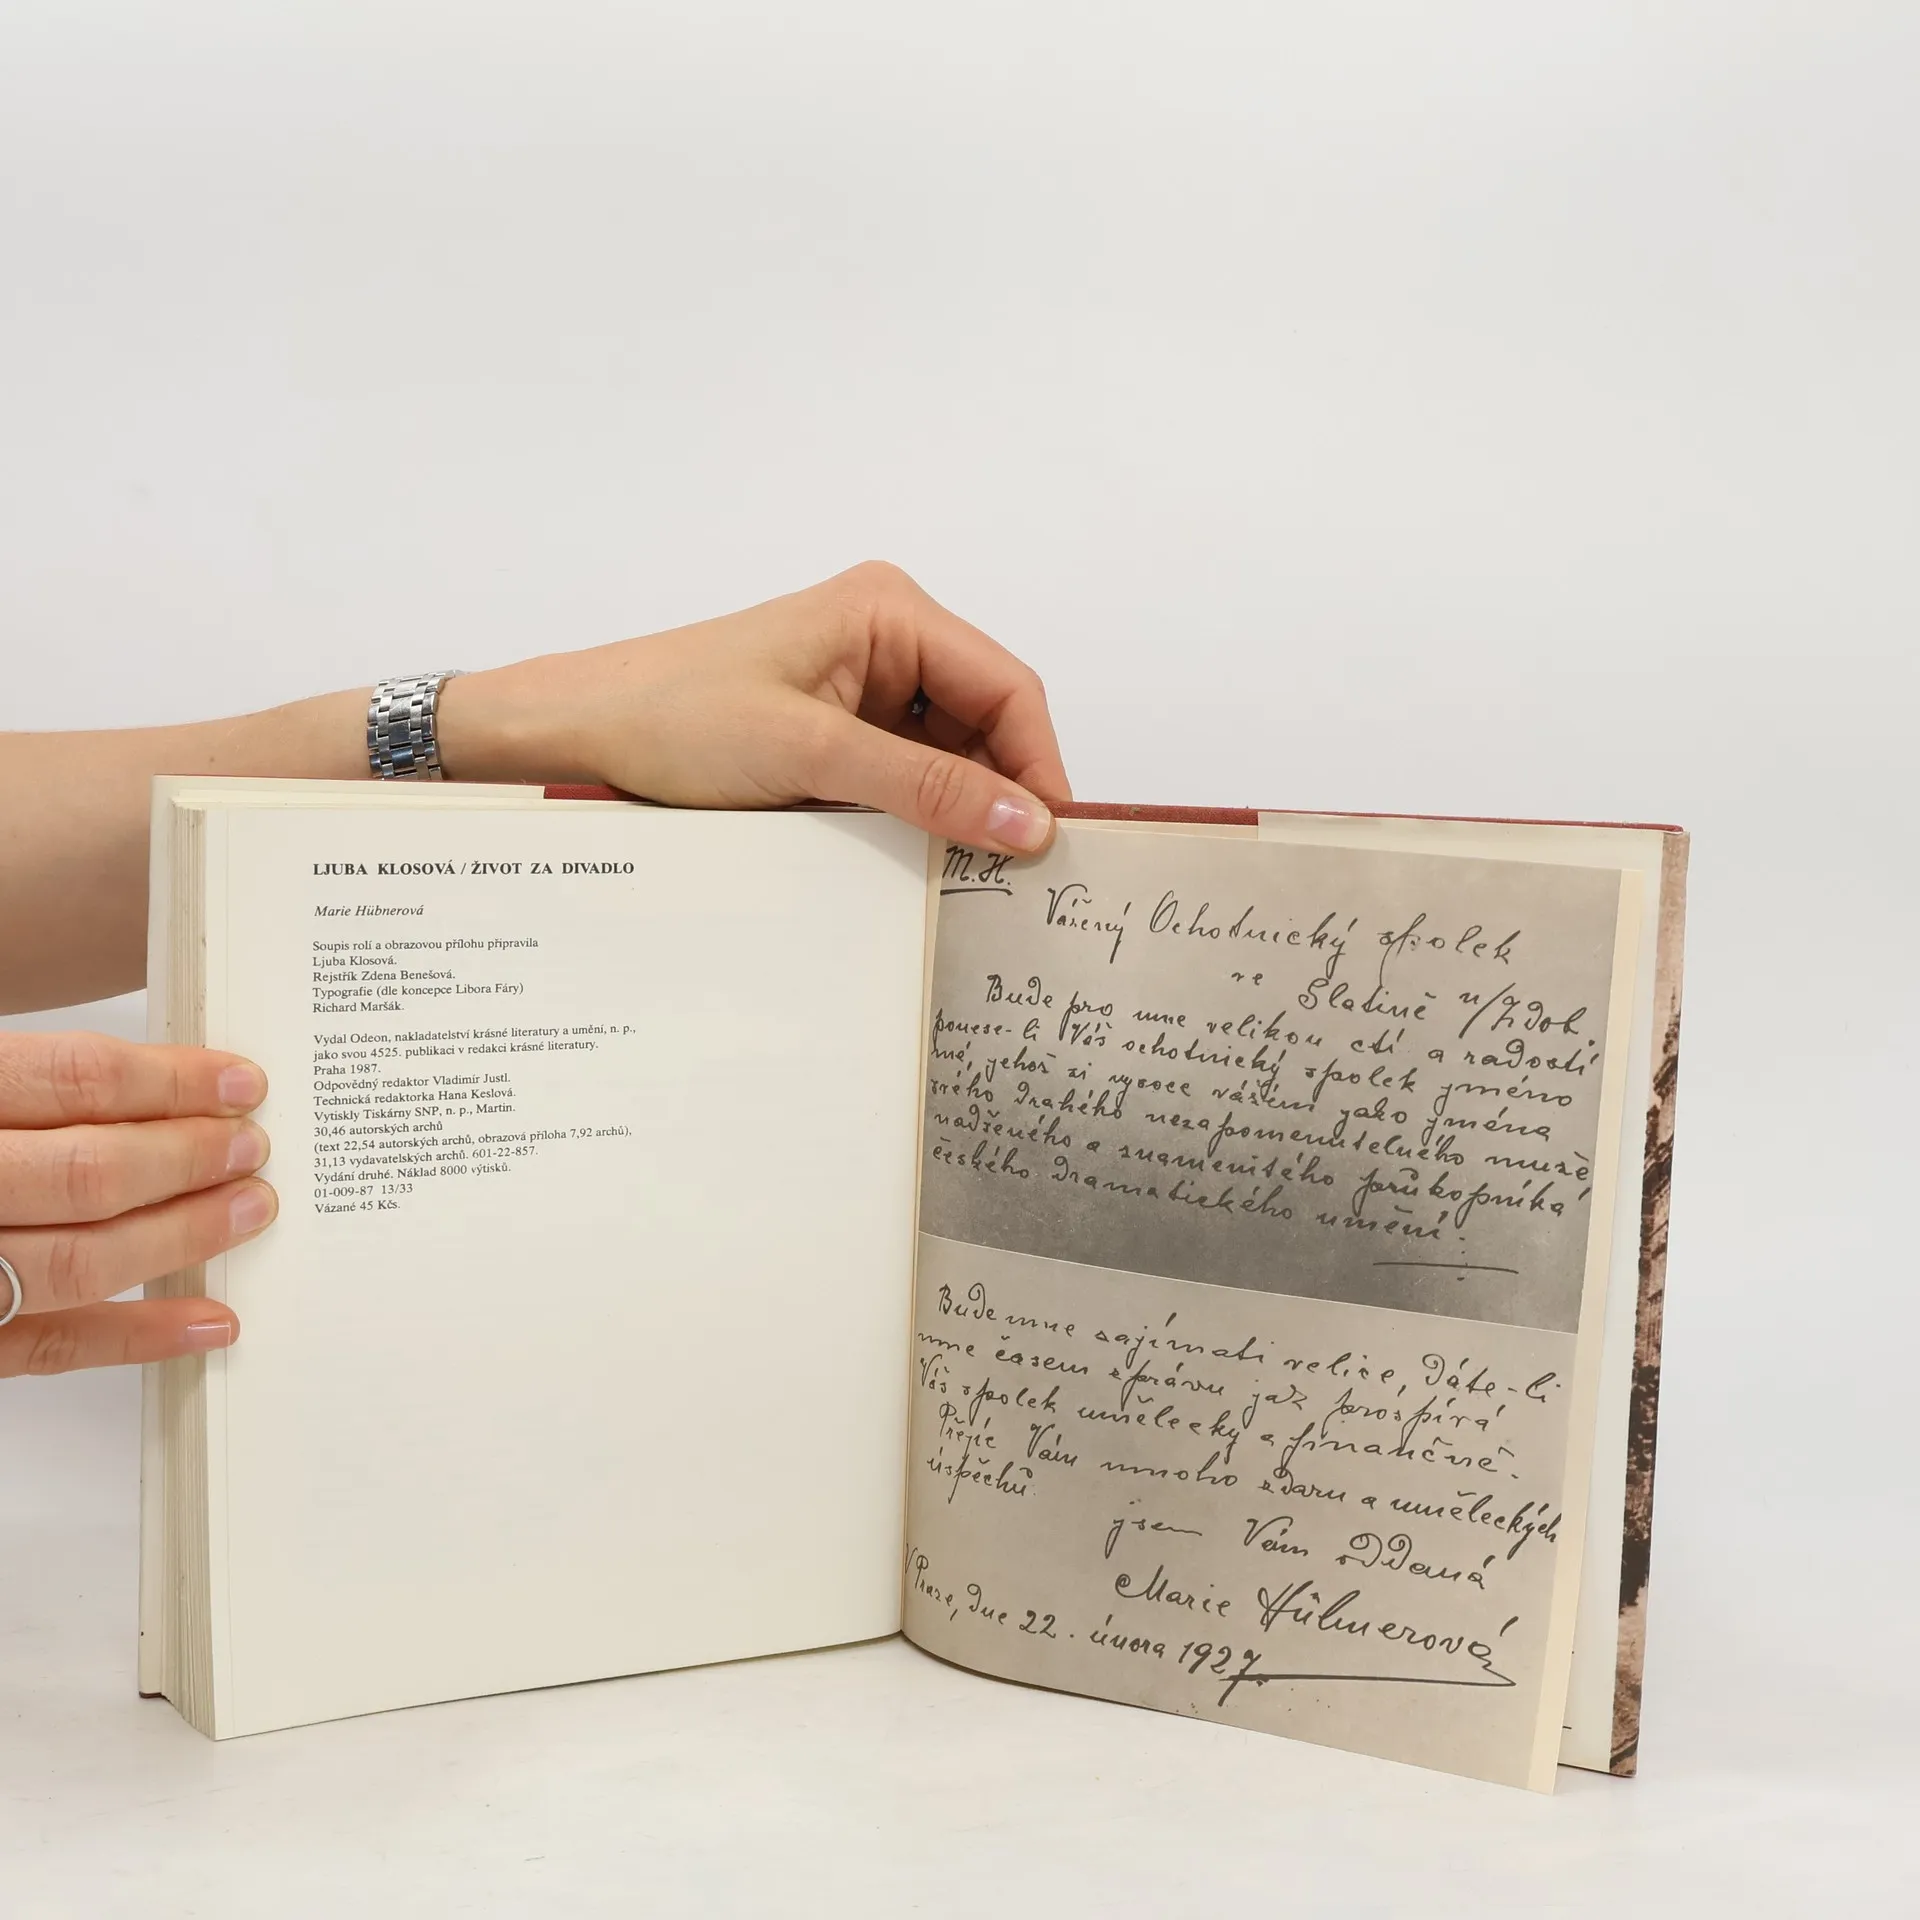 LJUBA KLOSOVÁ / ŽIVOT ZA DIVADLO
Marie Hübnerová
Soupis rolí a obrazovou přílohu připravila
Ljuba Klosová.
Rejstřík Zdena Benešová.
Typografie (dle koncepce Libora Fáry)
Richard Maršák.
Vydal Odeon, nakladatelství krásné literatury a umění, n. p.,
jako svou 4525. publikaci v redakci krásné literatury.
Praha 1987.
Odpovědný redaktor Vladimír Justl.
Technická redaktorka Hana Keslová.
Vytiskly Tiskárny SNP, n. p., Martin.
30,46 autorských archů
(text 22,54 autorských archů, obrazová příloha 7,92 archů),
31,13 vydavatelských archů. 601-22-857.
Vydání druhé. Náklad 8000 výtisků.
01-009-87 13/33
Vázané 45 Kčs.
M.H.
Vážený Ochotnický spolek
ve Slatině n/Zdob.
Bude pro mne velikou ctí a radostí
ponese-li Váš ochotnický spolek jméno
mé, jehož si vysoce vážím jako jména
svého drahého nezapomenutelného muže
nadšeného a znamenitého průkopníka
českého dramatického umění.
Bude mne zajímati velice, dáte-li
mne časem zprávu jak prospívá
Váš spolek umělecky a finančně.
Přejíc Vám mnoho zdaru a uměleckých
úspěchů.
jsem Vám oddaná
Marie Hübnerová
V Praze, dne 22. února 1927.